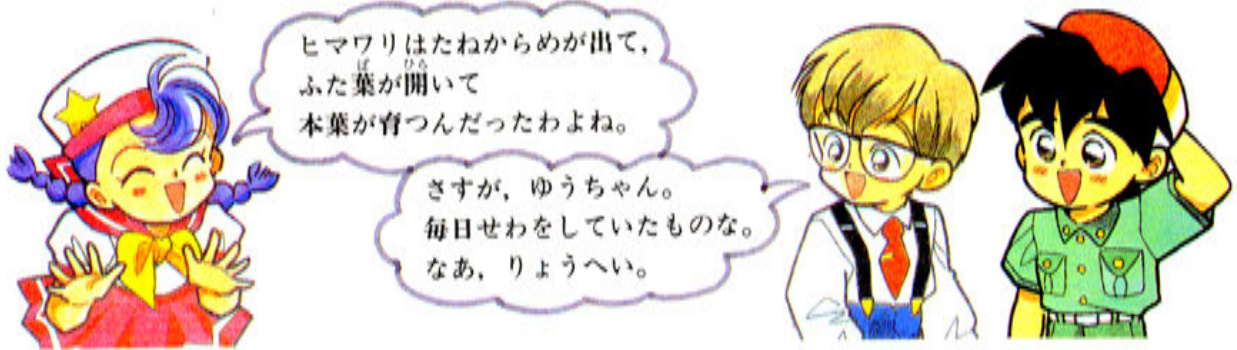 ヒマワリはたねからめが出て，
ふた葉が開いて
本葉が育つんだったわよね。
さすが，ゆうちゃん。
毎日せわをしていたものな。
なあ，りょうへい。